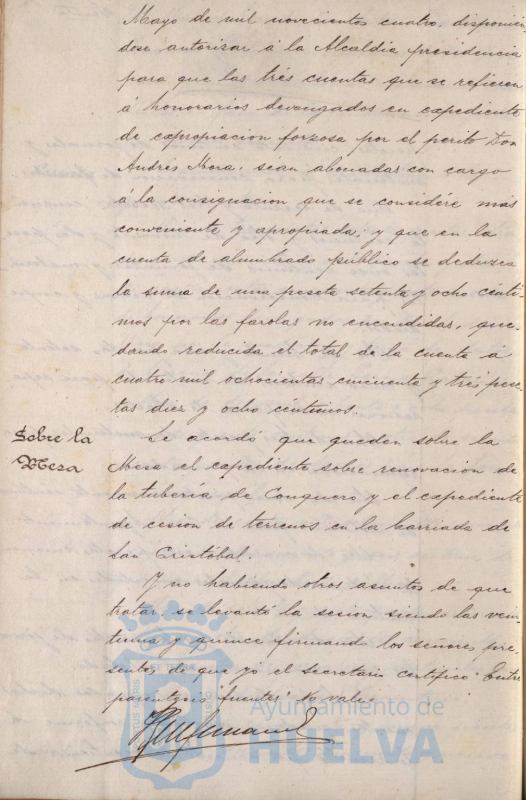 Mayo de mil novecientos cuatro, disponien-
dose autorizar á la Alcaldia presidencia
para que las trés cuentas que se refieren
á honorarios devengados en expediente
de expropiacion forzosa por el perito Don
Andrés Mora, sean abonadas con cargo
á la consignacion que se considére más
conveniente y apropiada, y que en la
cuenta de alumbrado público se deduzca
la suma de una peseta setenta y ocho cénti-
mos por las farolas no encendidas, que-
dando reducida el total de la cuenta á
cuatro mil ochocientas cincuenta y trés pese-
tas diez y ocho céntimos.
Sobre la
Mesa
Se acordó que queden sobre la
Mesa el expediente sobre renovacion de
la tuberia de Conquero y el expediente
de cesion de terrenos en la barriada de
San Cristóbal.
Y no habiendo otros asuntos de que
tratar, se levantó la sesion siendo las vein-
tiuna y quince firmando los señores pre-
sentes de que yó el Secretario certifico. Entre
parentesis fuentes: No vale.
Ayuntamiento de
HUELVA